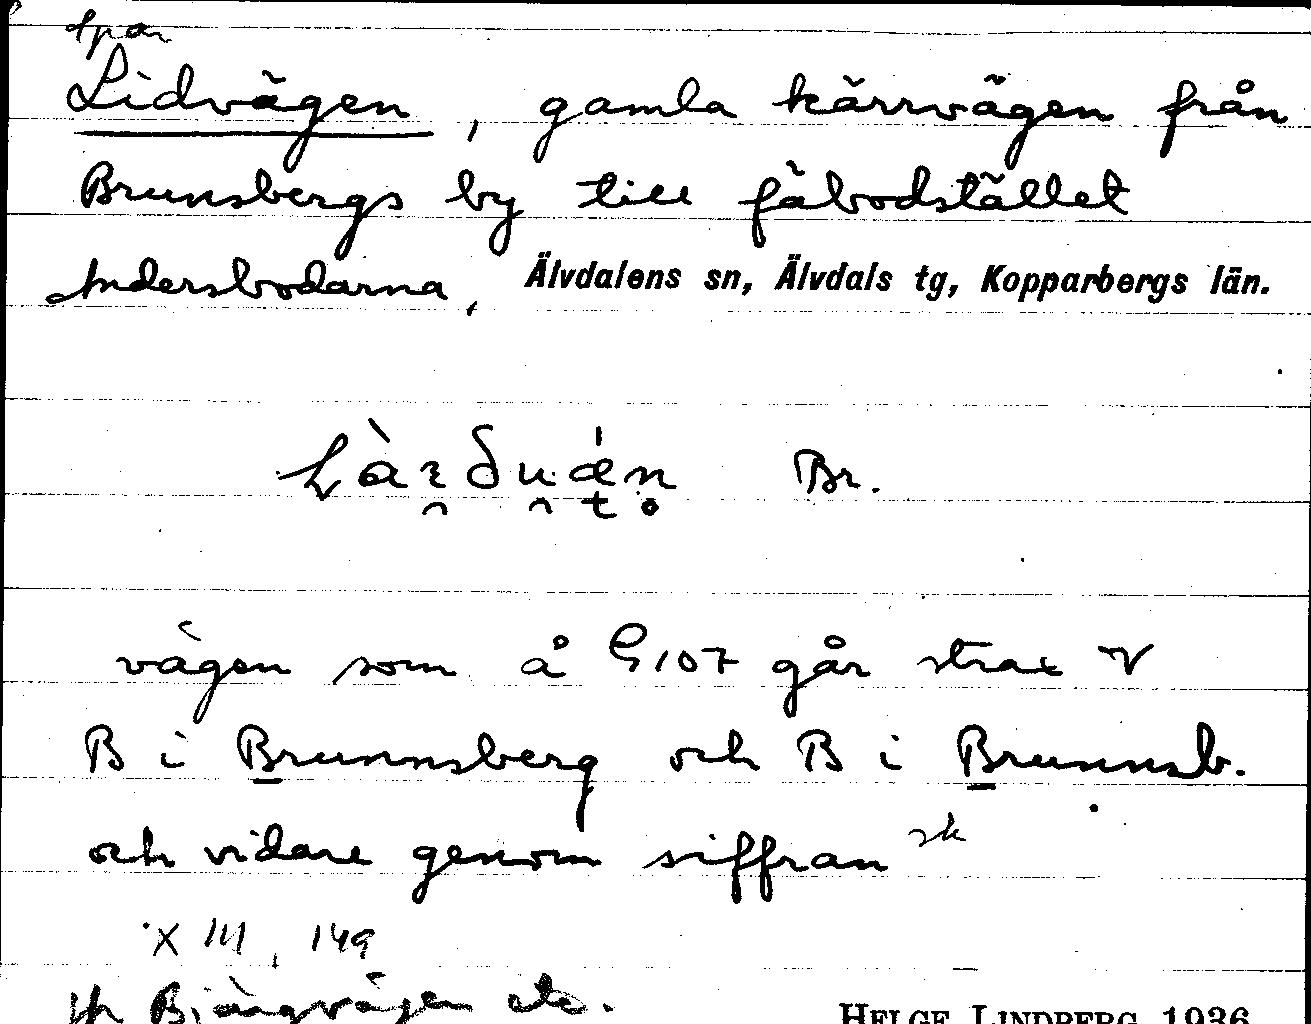 spar
Lidvägen, gamla kärrvägen från
Brunsbergs by till fäbodstället
Andersbodarna, Älvdalens sn, Älvdals tg, Kopparbergs län.
Br.
vägen som å G107 går strax V
B i Brunnsberg och B i Brunnsb.
och vidare genom siffran
X III, 149
etc.
HELGE LINDBERG 1936